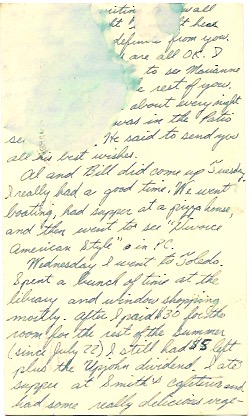 wall
definite from you.
are all OK. I
to see Marianne
e rest of you.
about every night
was in the Patio
He said to send you
all his best wishes.
Al and Bill did come up Tuesday.
I really had a good time. We went
boating, had supper at a pizza house,
and then went to see "Divorce
American Style" in P.C.
Wednesday I went to Toledo.
Spent a bunch of time at the
library and window shopping
mostly. After I paid $30 for the
room for the rest of the Summer
(since July 22) I still had $5 left
plus the Upjohn dividend. I ate
supper at Smith's cafeteria and
had some really delicious vege-